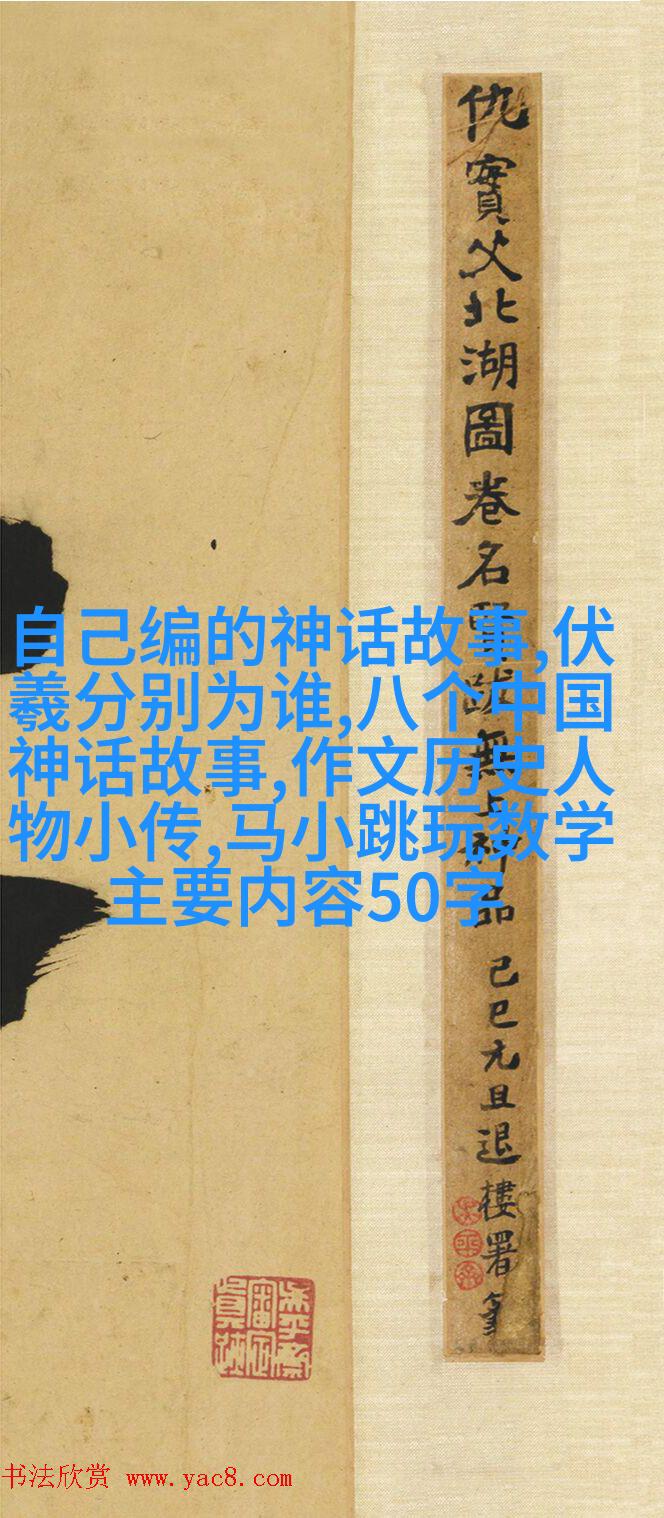 仇實父北湖圖卷名賢跋無上神品
己巳元旦退樓署
自己编的神话故事,伏
羲分别为谁,八个中国
神话故事,作文历史人
物小传,马小跳玩数学
主要内容50字
书法欣赏 www.yac8.com